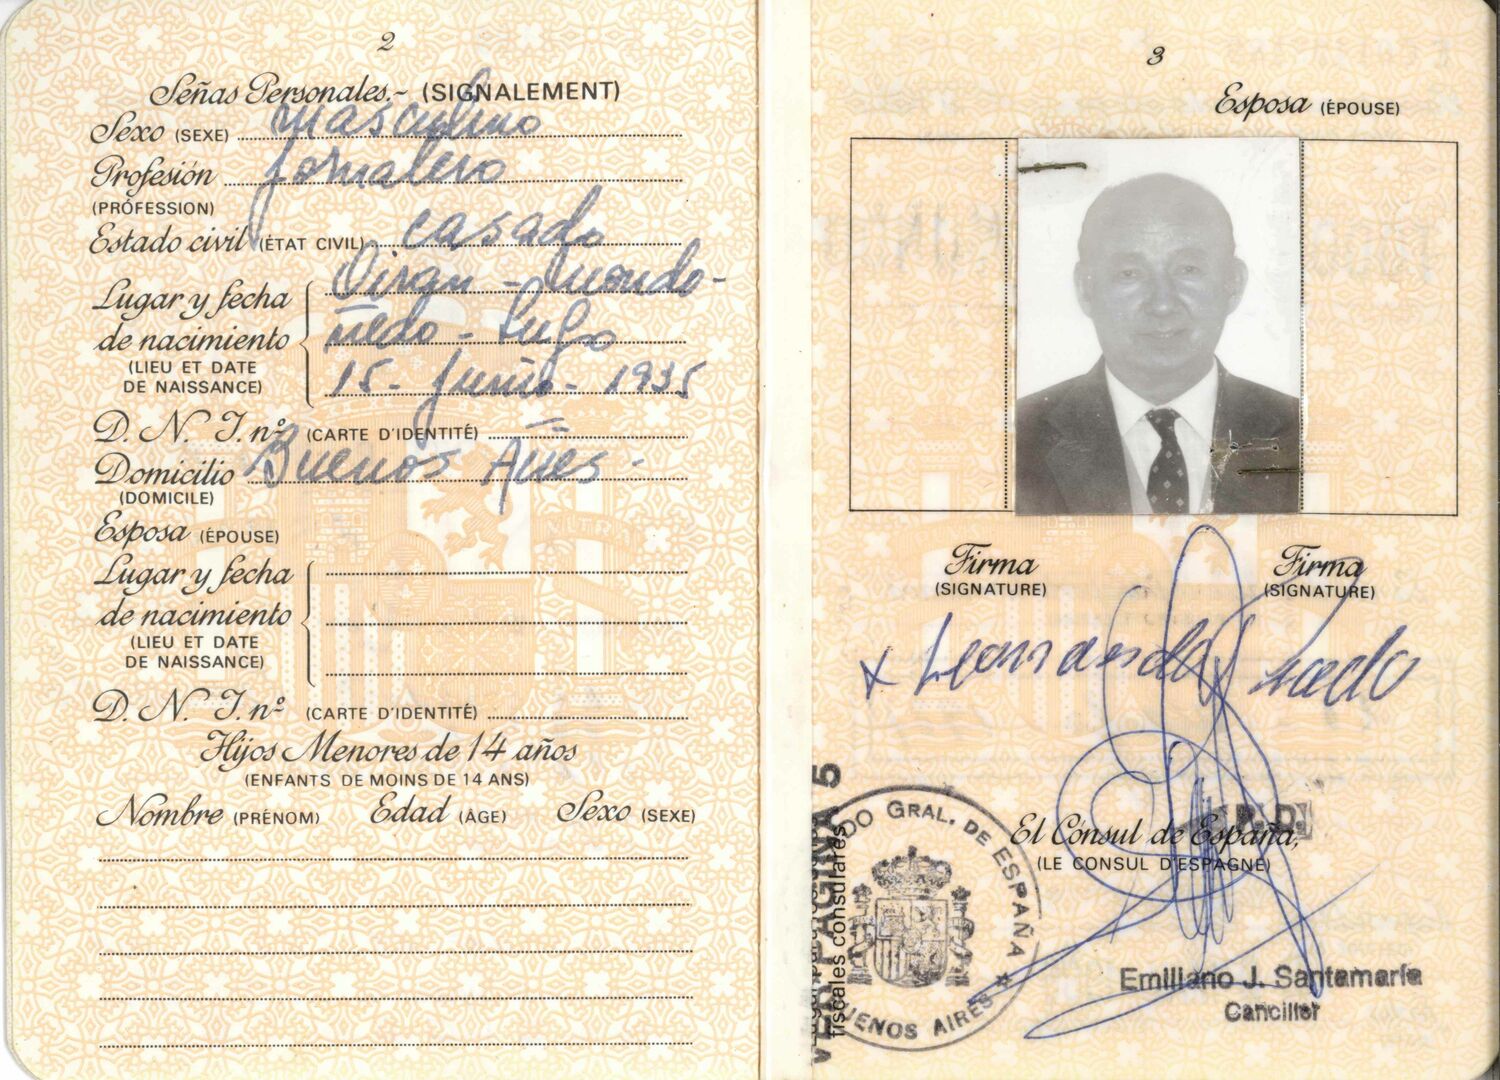 2
Señas Personales.- (SIGNALEMENT)
Sexo (SEXE) masculino
Profesión jornalero
(PRÓFESSION)
Estado civil (ÉTAT CIVIL) casado
Lugar y fecha
de nacimiento
(LIEU ET DATE
DE NAISSANCE)
Mondo-
ñedo - Lugo
15 - Junio - 1935
D. N. I. nº (CARTE D'IDENTITÉ)
Domicilio Buenos Aires -
(DOMICILE)
Esposa (ÉPOUSE)
Lugar y fecha
de nacimiento
(LIEU ET DATE
DE NAISSANCE)
D. N. I. nº (CARTE D'IDENTITÉ)
Hijos Menores de 14 años
(ENFANTS DE MOINS DE 14 ANS)
Nombre (PRÉNOM) Edad (ÂGE) Sexo (SEXE)
3
Esposa (ÉPOUSE)
Firma Firma
(SIGNATURE) (SIGNATURE)
P. D.
El Cónsul de España,
(LE CONSUL D'ESPAGNE)
GRAL. DE ESPAÑA
BUENOS AIRES
VER PAGINA 5
fiscales consulares
Emiliano J. Santamaría
Canciller